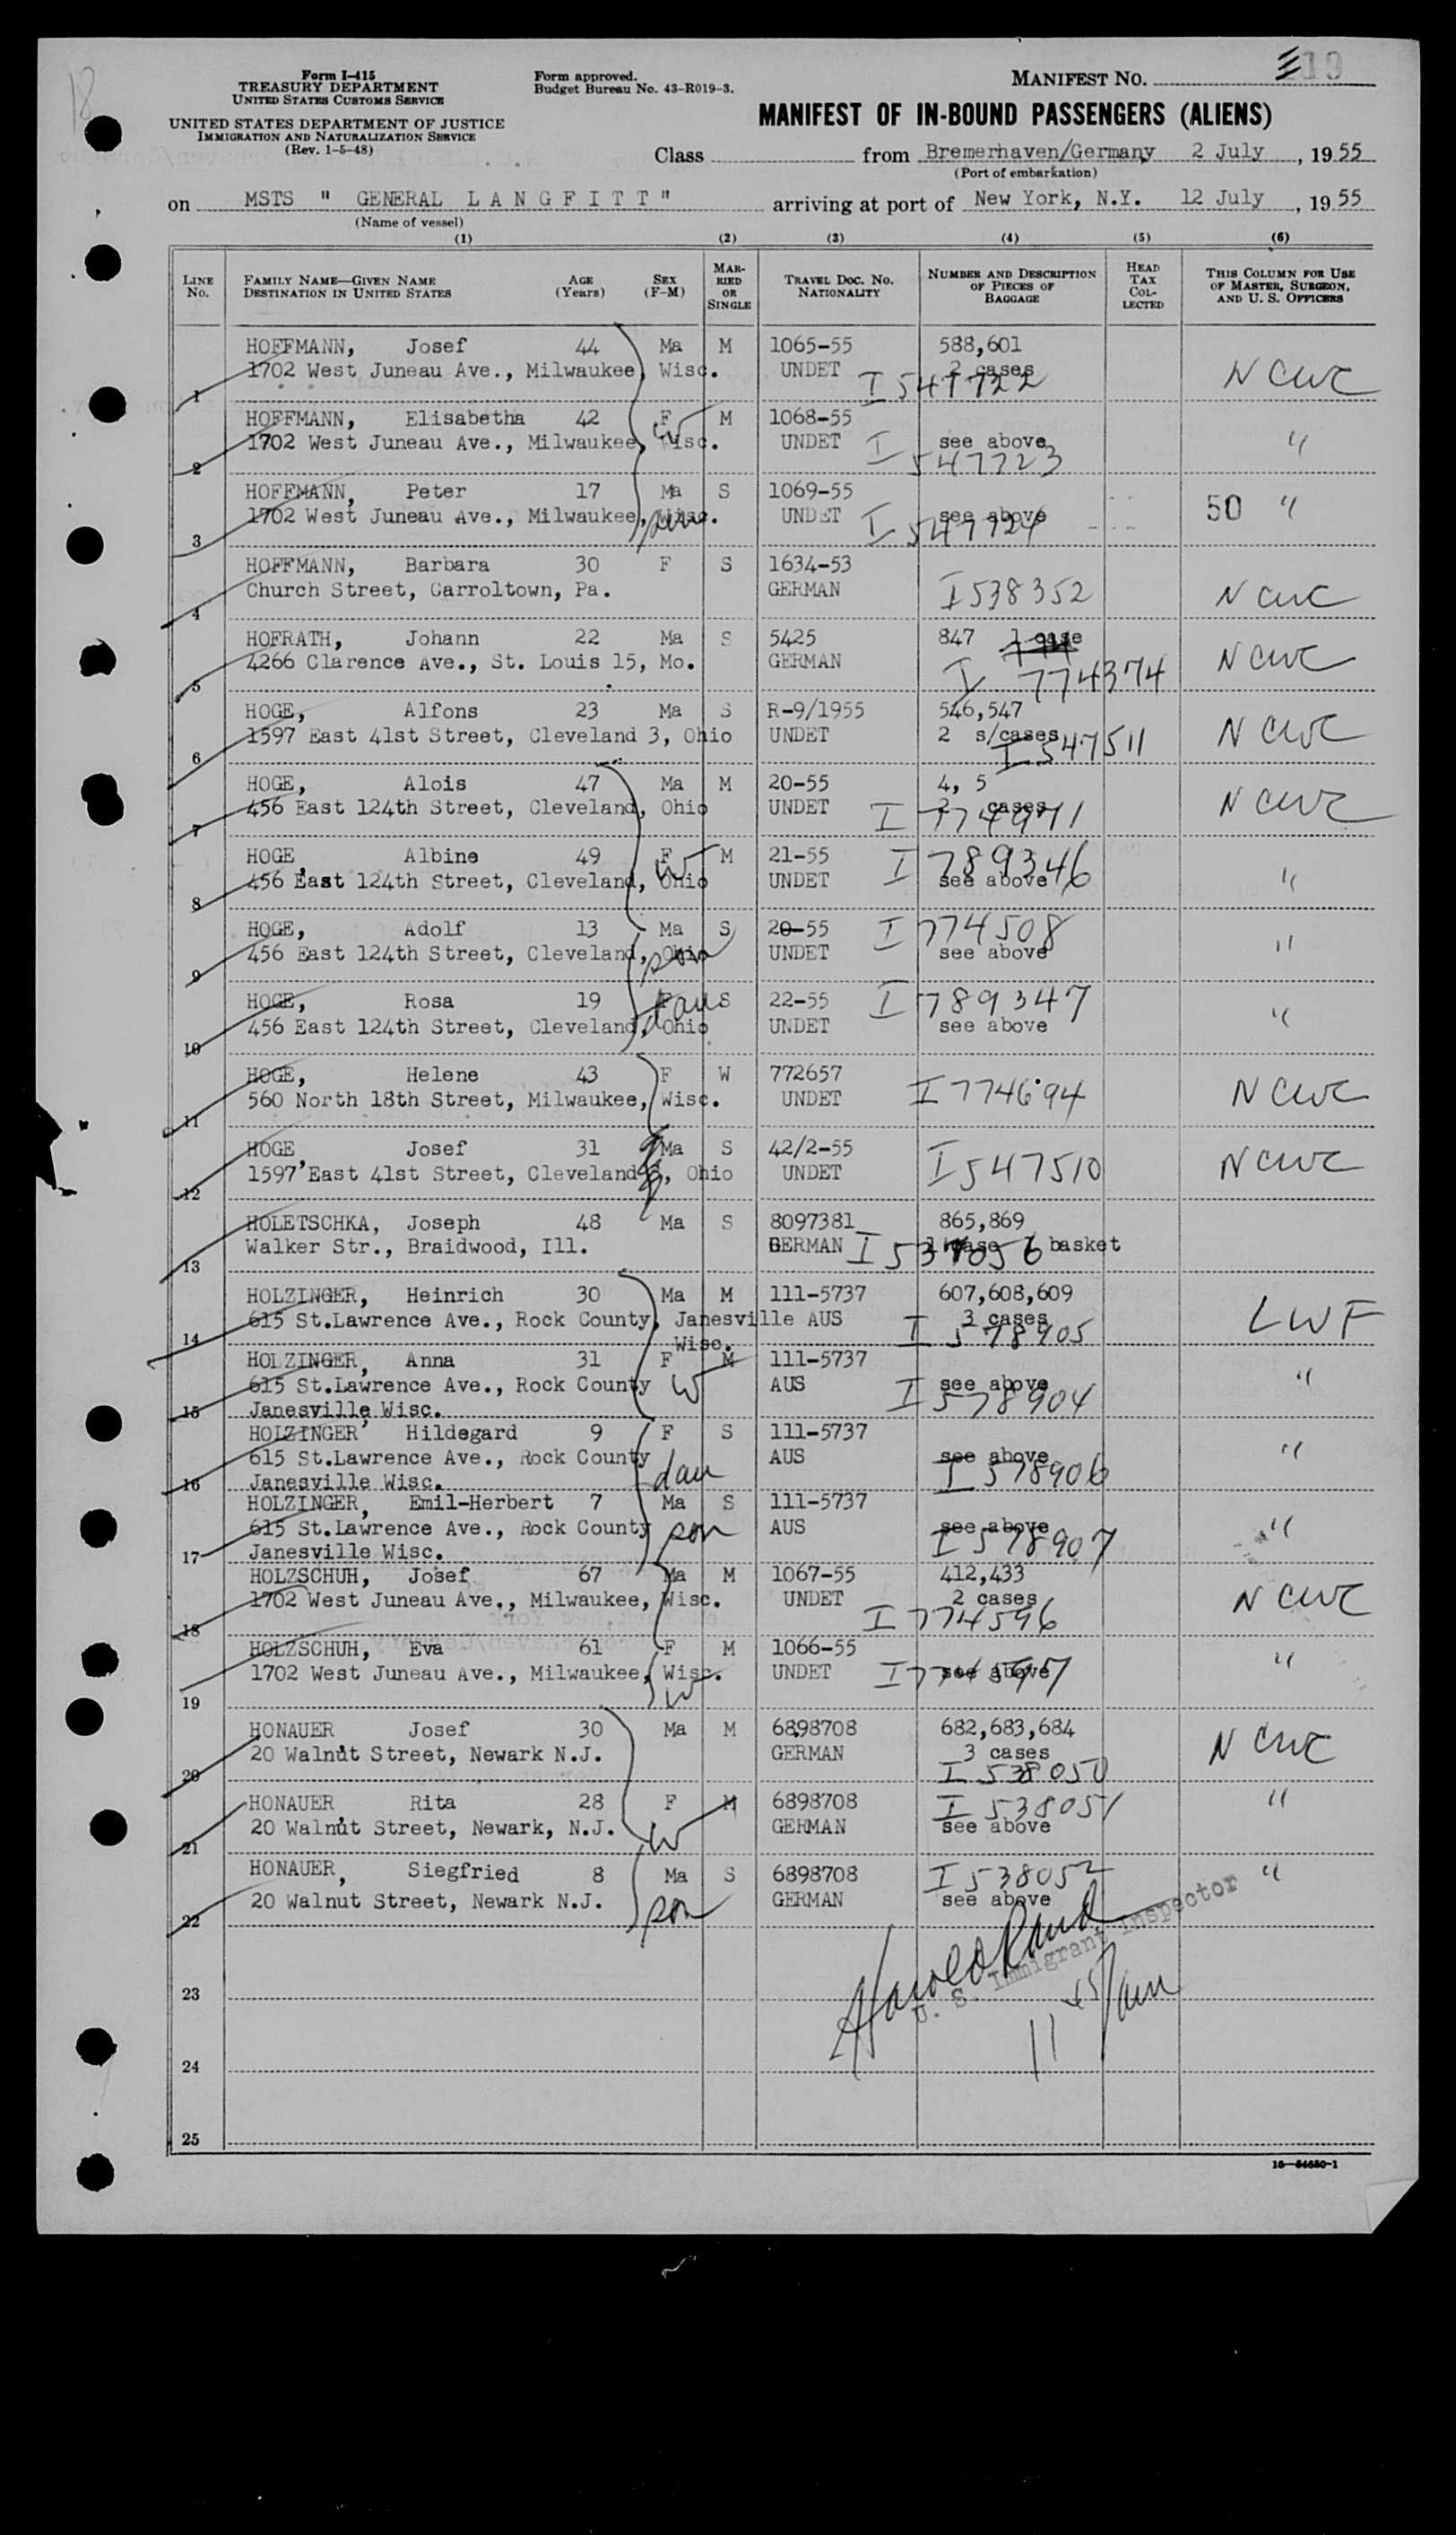 18
Form I-415
TREASURY DEPARTMENT
UNITED STATES CUSTOMS SERVICE
UNITED STATES DEPARTMENT OF JUSTICE
IMMIGRATION AND NATURALIZATION SERVICE
(Rev. 1-5-48)
Form approved.
Budget Bureau No. 43-R019-3.
MANIFEST NO. 19
MANIFEST OF IN-BOUND PASSENGERS (ALIENS)
Class from Bremerhaven/Germany 2 July, 1955
(Port of embarkation)
on MSTS " GENERAL L A N G F I T T " arriving at port of New York, N.Y. 12 July, 1955
(Name of vessel)
(1) (2) (3) (4) (5) (6)
LINE No. FAMILY NAME—GIVEN NAME DESTINATION IN UNITED STATES AGE (Years) SEX (F-M) MARRIED OR SINGLE TRAVEL DOC. NO. NATIONALITY NUMBER AND DESCRIPTION OF PIECES OF BAGGAGE HEAD TAX COLLECTED THIS COLUMN FOR USE OF MASTER, SURGEON, AND U. S. OFFICERS
HOFFMANN, Josef 44 Ma M 1065-55 588,601
1702 West Juneau Ave., Milwaukee, Wisc. UNDET 2 cases NCWC
1 I 547722
HOFFMANN, Elisabetha 42 F M 1068-55
1702 West Juneau Ave., Milwaukee, Wisc. W UNDET see above "
2 I 547723
HOFFMANN, Peter 17 Ma S 1069-55
1702 West Juneau Ave., Milwaukee, Wisc. son UNDET see above 50 "
3 I 547724
HOFFMANN, Barbara 30 F S 1634-53
Church Street, Carroltown, Pa. GERMAN I 538352 NCWC
4
HOFRATH, Johann 22 Ma S 5425 847 1 case
4266 Clarence Ave., St. Louis 15, Mo. GERMAN NCWC
5 I 774374
HOGE, Alfons 23 Ma S R-9/1955 546,547
1597 East 41st Street, Cleveland 3, Ohio UNDET 2 s/cases NCWC
6 I 547511
HOGE, Alois 47 Ma M 20-55 4, 5
456 East 124th Street, Cleveland, Ohio UNDET 2 cases NCWC
7 I 774971
HOGE, Albine 49 F M 21-55 I 789346
456 East 124th Street, Cleveland, Ohio W UNDET see above "
8
HOGE, Adolf 13 Ma S 20-55 I 774508
456 East 124th Street, Cleveland, Ohio son UNDET see above "
9
HOGE, Rosa 19 F dau S 22-55 I 789347
456 East 124th Street, Cleveland, Ohio UNDET see above "
10
HOGE, Helene 43 F W 772657
560 North 18th Street, Milwaukee, Wisc. UNDET I 774694 NCWC
11
HOGE, Josef 31 Ma S 42/2-55
1597 East 41st Street, Cleveland 3, Ohio UNDET I 547510 NCWC
12
HOLETSCHKA, Joseph 48 Ma S 8097381 865,869
Walker Str., Braidwood, Ill. GERMAN 1 case 1 basket
13
HOLZINGER, Heinrich 30 Ma M 111-5737 607,608,609
615 St.Lawrence Ave., Rock County, Janesville AUS 3 cases LWF
14 Wisc. I 578905
HOLZINGER, Anna 31 F M 111-5737
615 St.Lawrence Ave., Rock County W AUS see above "
15 Janesville, Wisc. I 578904
HOLZINGER Hildegard 9 F S 111-5737
615 St.Lawrence Ave., Rock County dau AUS see above "
16 Janesville Wisc. I 578906
HOLZINGER, Emil-Herbert 7 Ma S 111-5737
615 St.Lawrence Ave., Rock County son AUS see above "
17 Janesville Wisc. I 578907
HOLZSCHUH, Josef 67 Ma M 1067-55 412,433
1702 West Juneau Ave., Milwaukee, Wisc. UNDET 2 cases NCWC
18 I 774596
HOLZSCHUH, Eva 61 F M 1066-55
1702 West Juneau Ave., Milwaukee, Wisc. W UNDET see above "
19
HONAUER, Josef 30 Ma M 6898708 682,683,684
20 Walnut Street, Newark N.J. GERMAN 3 cases NCWC
20 I 538050
HONAUER, Rita 28 F M 6898708 I 538051
20 Walnut Street, Newark, N.J. W GERMAN see above "
21
HONAUER, Siegfried 8 Ma S 6898708 I 538052
20 Walnut Street, Newark N.J. son GERMAN see above "
22
Harold Rand
U. S. Immigrant Inspector
11 45 am
23
24
25
16—54650-1